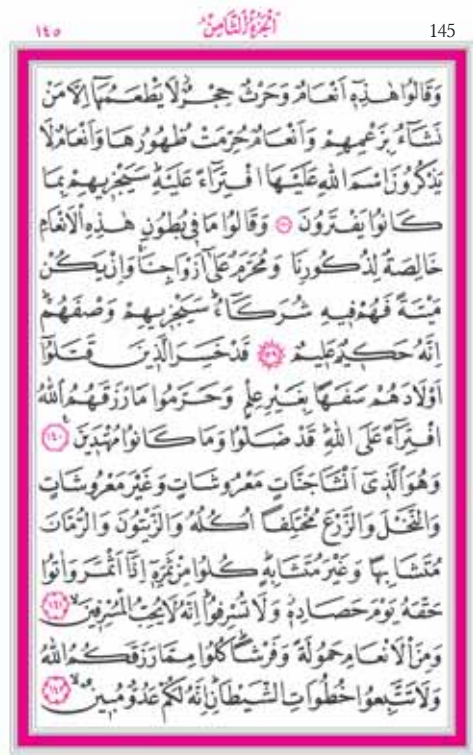 ١٤٥ اَلْجُزْءُ الثَّامِنُ 145
وَقَالُوا هٰذِهٖٓ اَنْعَامٌ وَحَرْثٌ حِجْرٌۘ لَا يَطْعَمُهَٓا اِلَّا مَنْ
نَشَٓاءُ بِزَعْمِهِمْ وَاَنْعَامٌ حُرِّمَتْ ظُهُورُهَا وَاَنْعَامٌ لَا
يَذْكُرُونَ اسْمَ اللّٰهِ عَلَيْهَا افْتِرَٓاءً عَلَيْهِۜ سَيَجْزٖيهِمْ بِمَا
كَانُوا يَفْتَرُونَ ﴿١٣٨﴾ وَقَالُوا مَا فٖي بُطُونِ هٰذِهِ الْاَنْعَامِ
خَالِصَةٌ لِذُكُورِنَا وَمُحَرَّمٌ عَلٰٓى اَزْوَاجِنَاۚ وَاِنْ يَكُنْ
مَيْتَةً فَهُمْ فٖيهِ شُرَكَٓاءُۜ سَيَجْزٖيهِمْ وَصْفَهُمْۜ
اِنَّهُ حَكٖيمٌ عَلٖيمٌ ﴿١٣٩﴾ قَدْ خَسِرَ الَّذٖينَ قَتَلُٓوا
اَوْلَادَهُمْ سَفَهًا بِغَيْرِ عِلْمٍ وَحَرَّمُوا مَا رَزَقَهُمُ اللّٰهُ
افْتِرَٓاءً عَلَى اللّٰهِۜ قَدْ ضَلُّوا وَمَا كَانُوا مُهْتَدٖينَ ﴿١٤٠﴾
وَهُوَ الَّذٖٓي اَنْشَاَ جَنَّاتٍ مَعْرُوشَاتٍ وَغَيْرَ مَعْرُوشَاتٍ
وَالنَّخْلَ وَالزَّرْعَ مُخْتَلِفًا اُكُلُهُ وَالزَّيْتُونَ وَالرُّمَّانَ
مُتَشَابِهًا وَغَيْرَ مُتَشَابِهٍۜ كُلُوا مِنْ ثَمَرِهٖٓ اِذَٓا اَثْمَرَ وَاٰتُوا
حَقَّهُ يَوْمَ حَصَادِهٖۘ وَلَا تُسْرِفُواۜ اِنَّهُ لَا يُحِبُّ الْمُسْرِفٖينَۙ ﴿١٤١﴾
وَمِنَ الْاَنْعَامِ حَمُولَةً وَفَرْشًاۜ كُلُوا مِمَّا رَزَقَكُمُ اللّٰهُ
وَلَا تَتَّبِعُوا خُطُوَاتِ الشَّيْطَانِۜ اِنَّهُ لَكُمْ عَدُوٌّ مُبٖينٌۙ ﴿١٤٢﴾